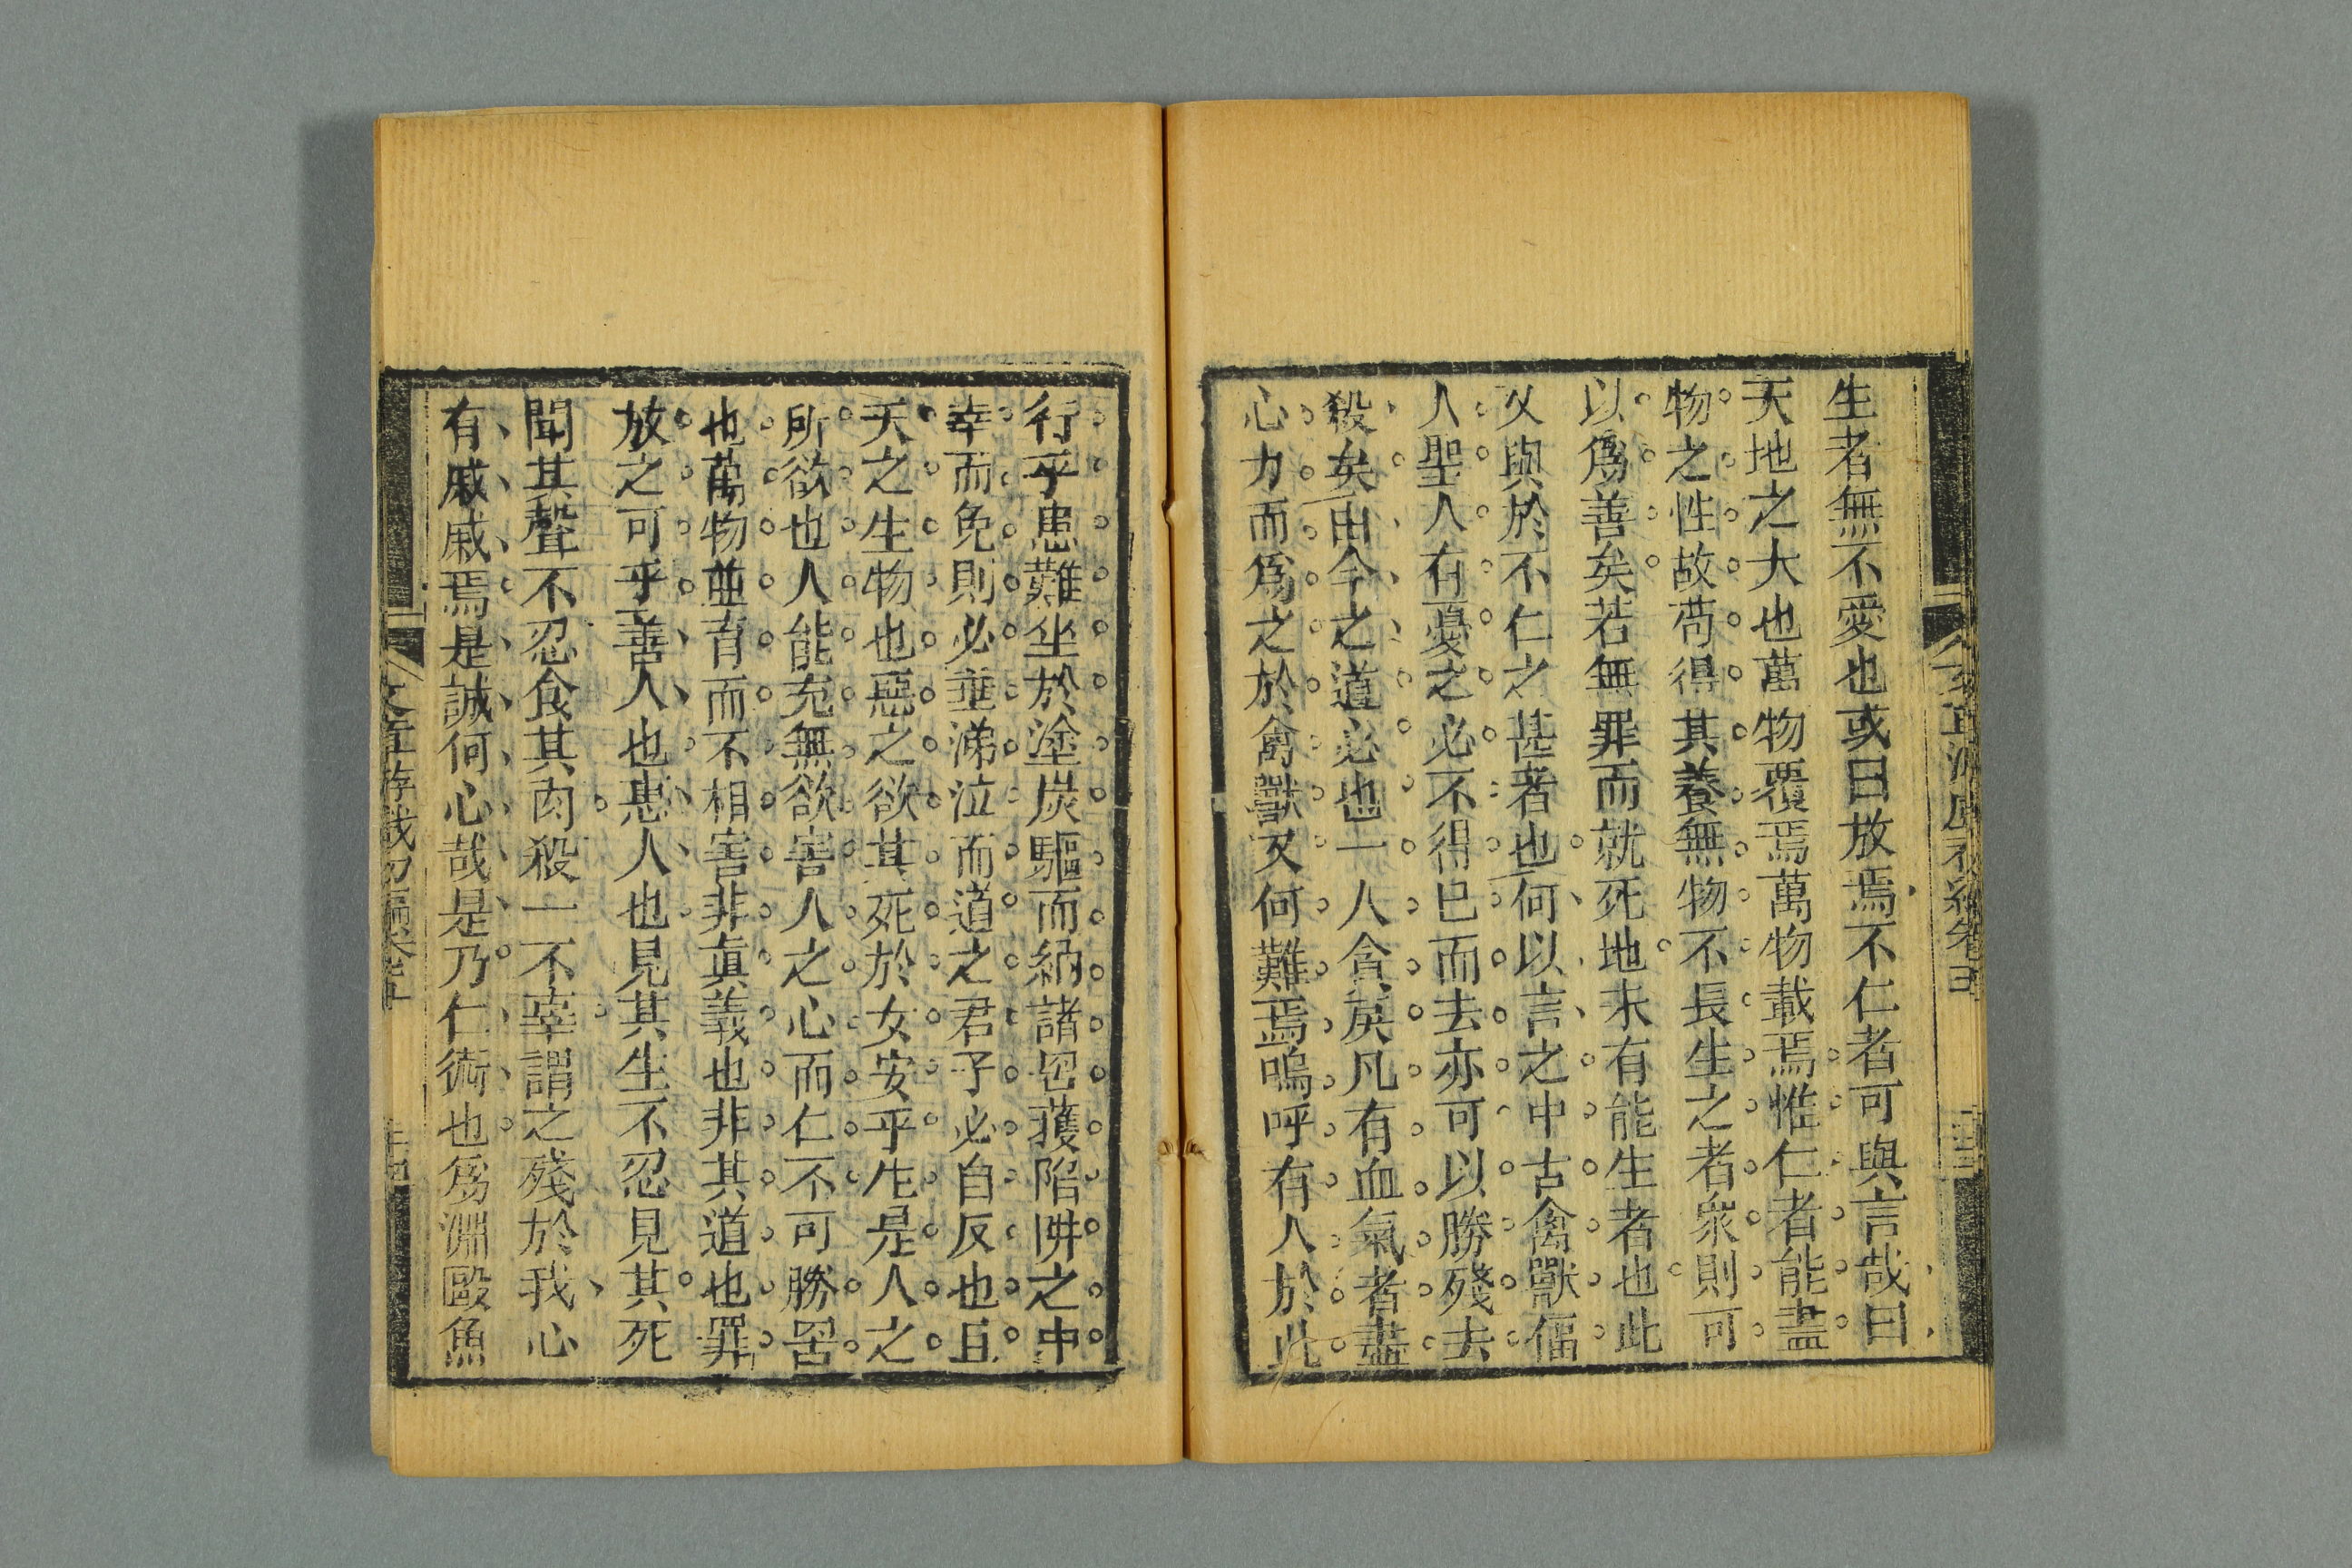 生者無不愛也或曰放焉不仁者可與言哉曰
天地之大也萬物覆焉萬物載焉惟仁者能盡
物之性故苟得其養無物不長生之者衆則可
以爲善矣若無罪而就死地未有能生者也此
又與於不仁之甚者也何以言之中古禽獸偪
人聖人有憂之必不得已而去亦可以勝殘去
殺矣由今之道必也一人貪戾凡有血氣者盡
心力而爲之於禽獸又何難焉嗚呼有人於此
行乎患難坐於塗炭驅而納諸罟獲陷阱之中
幸而免則必垂涕泣而道之君子必自反也且
天之生物也惡之欲其死於女安乎生是人之
所欲也人能充無欲害人之心而仁不可勝
也萬物並育而不相害非眞義也非其道也罪
放之可乎善人也患人也見其生不忍見其死
聞其聲不忍食其肉殺一不辜謂之殘於我心
有戚戚焉是誠何心哉是乃仁術也爲淵毆魚